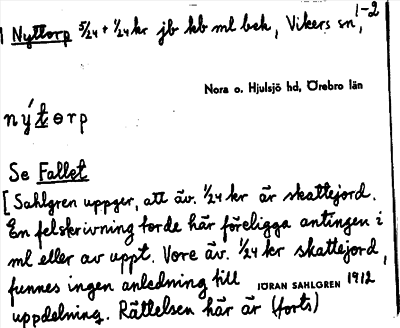 1 Nyttorp 5/24 + 1/24 kr jb kb ml bek, Vikers sn, 1-2
Nora o. Hjulsjö hd, Örebro län
nýtɵrp
Se Fallet
[Sahlgren uppger, att äv. 1/24 kr är skattejord.
En felskrivning torde här föreligga antingen i
ml eller av uppt. Vore äv. 1/24 kr skattejord,
funnes ingen anledning till
JÖRAN SAHLGREN 1912
uppdelning. Rättelsen här är (forts)